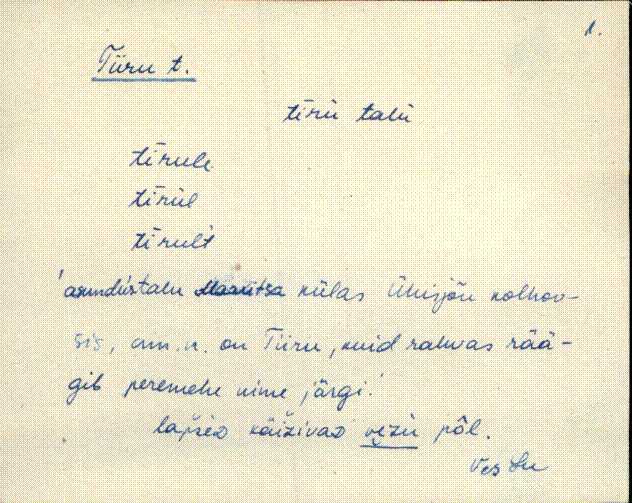 1.
Tiiru t.
tīrù talù
tīrule
tīrùl
tīrult
'asundùstalu Maaritsa külas Ühisjõu kolhoo-
sis, am. n. on Tiiru, kuid rahvas rää-
gib peremehe nime järgi.'
lapsed käiživad vezù pǟl.
Ves Su